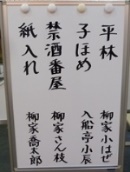 平林 柳家小はぜ
子ほめ 入船亭小辰
禁酒番屋 柳家さん枝
紙入れ 柳家喬太郎